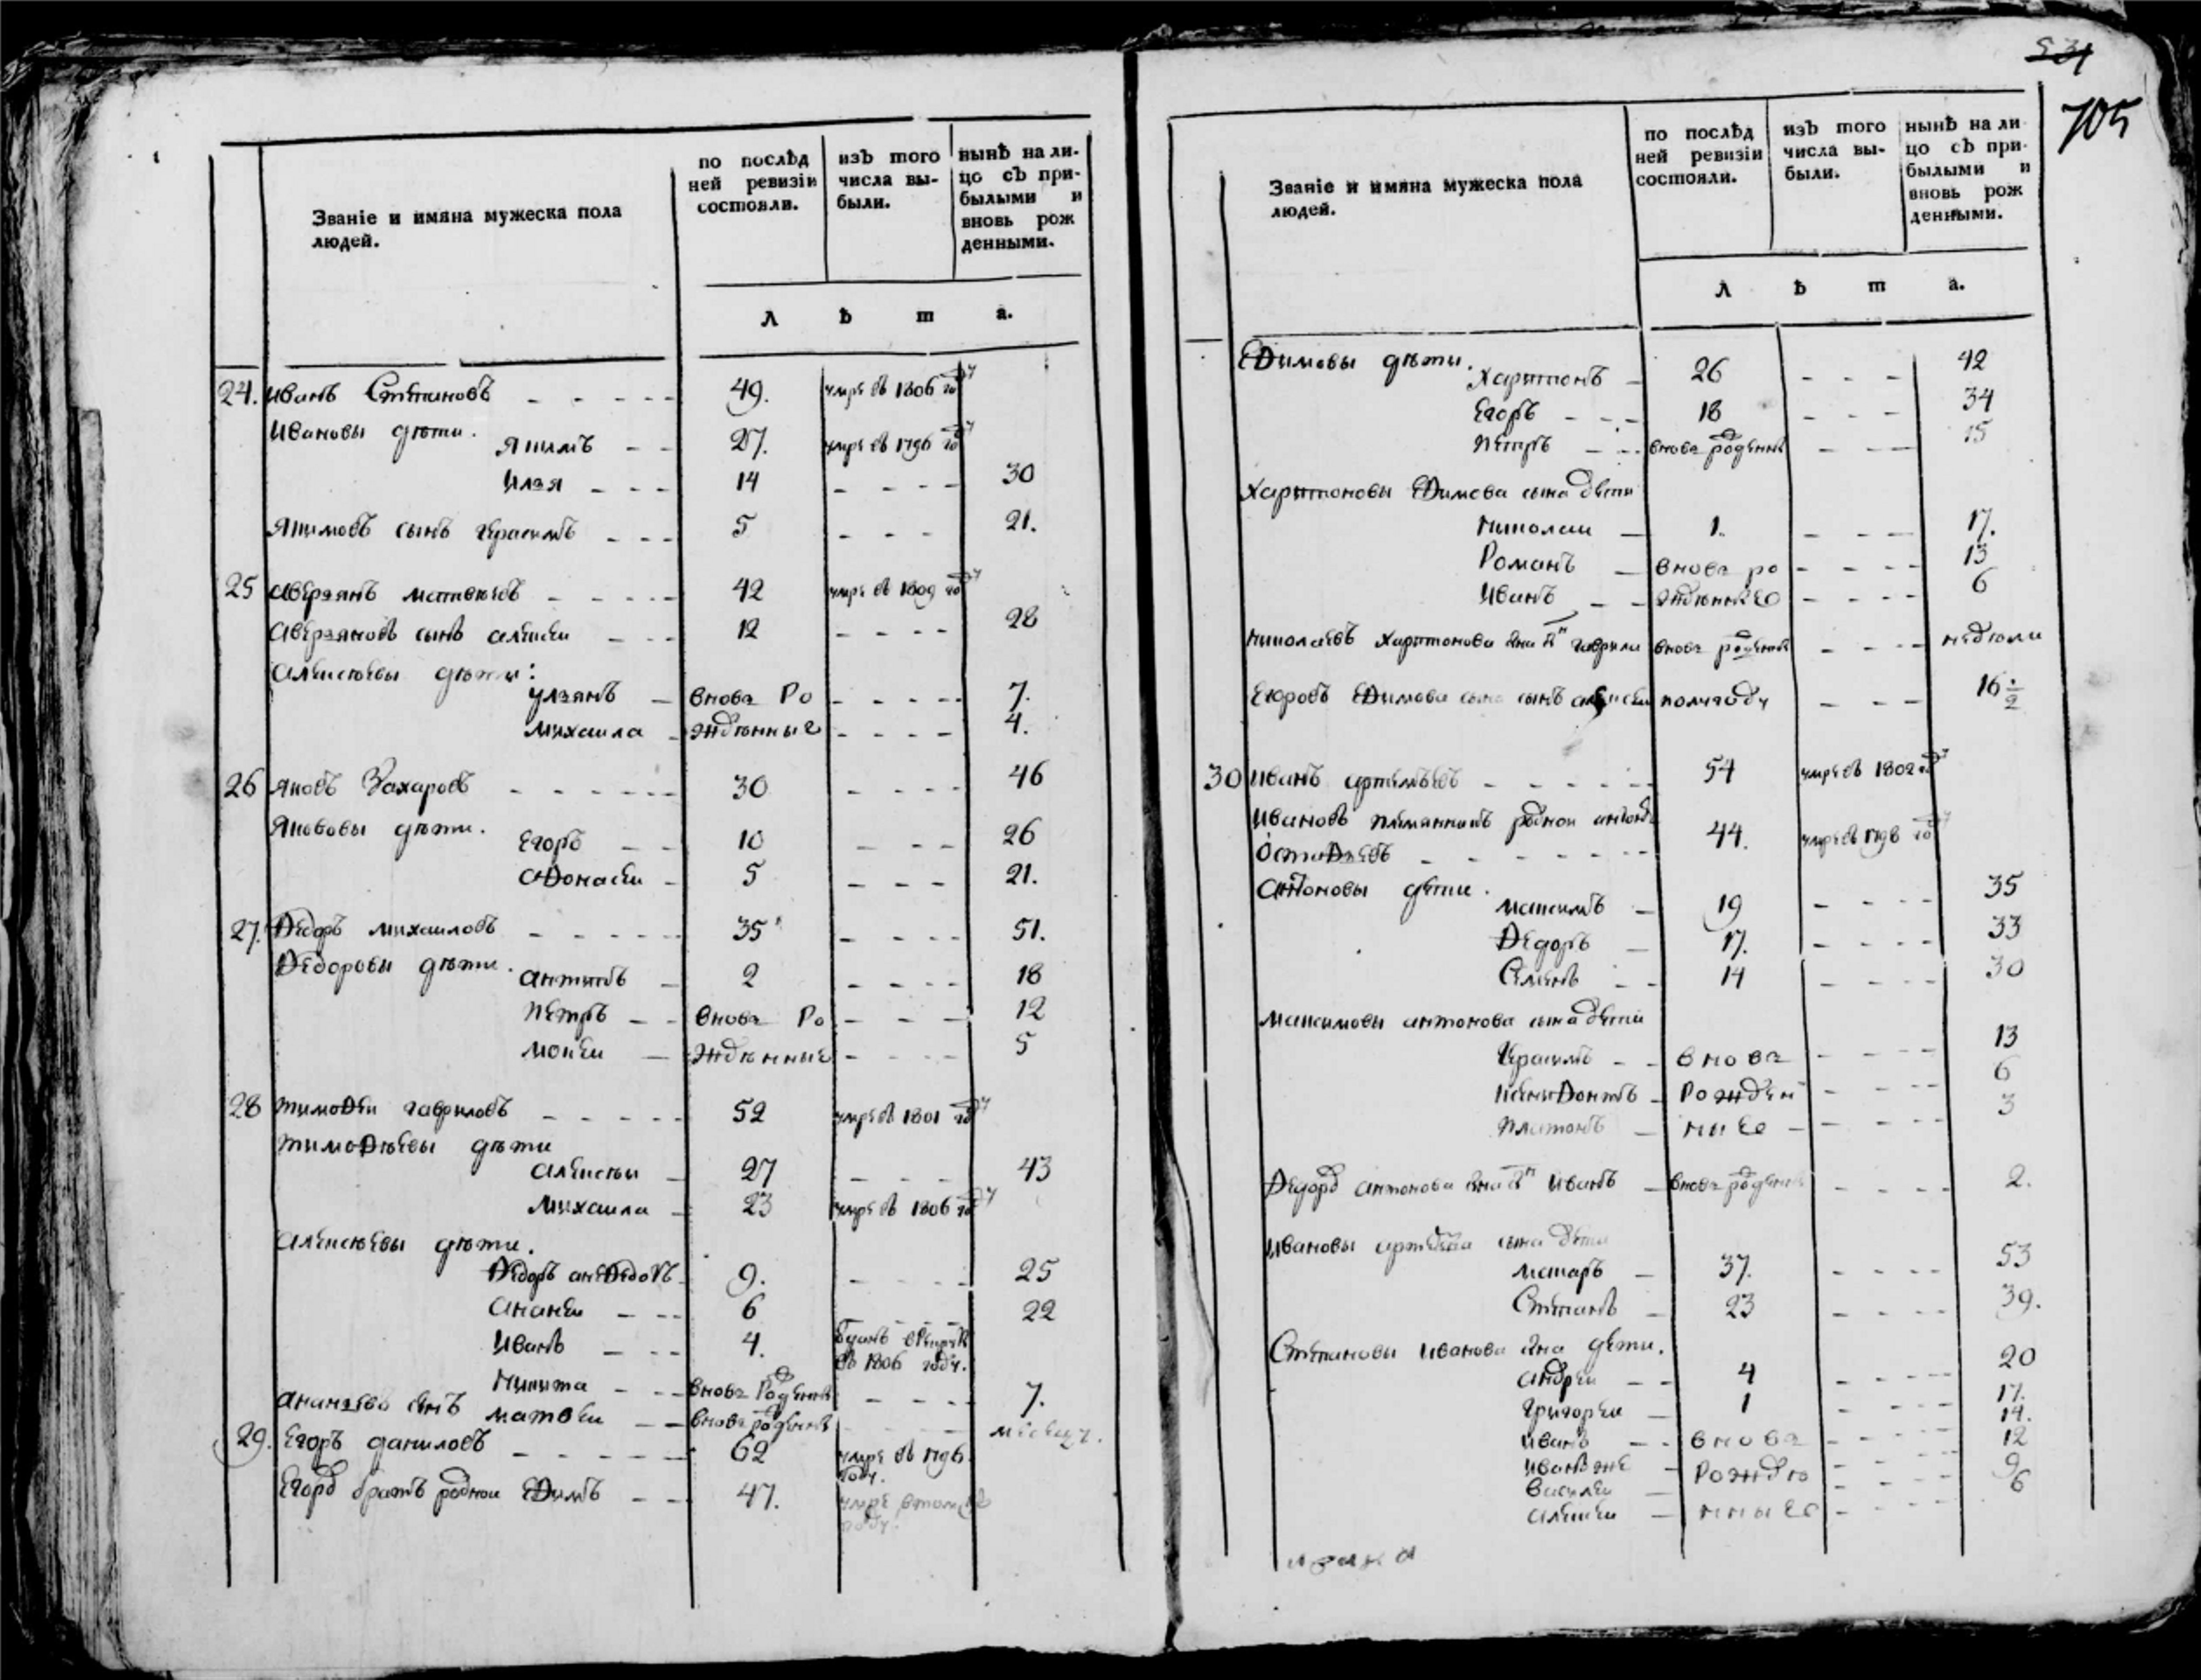 Званіе и имяна мужеска пола
людей.
по послѣд
ней ревизіи
состояли.
изъ того
числа вы-
были.
нынѣ на ли-
цо съ при-
былыми и
вновь рож
денными.
л ѣ т а.
24. Иванъ Степановъ 49. умре въ 1806 году
Ивановы дѣти.
Якимъ 27. умре въ 1796 году
Илья 14 30
Якимовъ сынъ Герасимъ 5 21.
25 Аверьянъ Матвѣевъ 42 умре въ 1809 году
Аверьяновъ сынъ Алексеи 12 28
Алексѣевы дѣти:
Ульянъ вновь Ро 7.
Михаила жденные 4.
26 Яковъ Захаровъ 30 46
Якововы дѣти.
Егоръ 10 26
Афонасеи 5 21.
27. Федоръ Михаиловъ 35 51.
Федоровы дѣти.
Антипъ 2 18
Петръ вновь Ро 12
Мокеи жденные 5
28 Тимофеи Гавриловъ 52 умре въ 1801 году
Тимофѣевы дѣти
Алексѣи 27 43
Михаила 23 умре въ 1806 году
Алексѣевы дѣти.
Федоръ 9. 25
Ананеи 6 22
Иванъ 4.
въ 1806 году.
Никита вновь рожденъ 7.
Ананьевъ сынъ Матвеи вновь рожденъ месецъ.
29. Егоръ Даниловъ 62 умре въ 1796
году.
Егоръ братъ роднои Ефимъ 47. умре
году.
531
705
Званіе и имяна мужеска пола
людей.
по послѣд
ней ревизіи
состояли.
изъ того
числа вы-
были.
нынѣ на ли-
цо съ при-
былыми и
вновь рож
денными.
л ѣ т а.
Ефимовы дѣти.
Харитонъ 26 42
Егоръ 18 34
Петръ вновь рожденъ 15
Харитоновы Ефимова сына дѣти
Николаи 1. 17.
Романъ вновь ро 13
Иванъ жденные 6
Николаевъ Харитонова сынъ Гаврила вновь рожденъ недѣли
Егоровъ Ефимова сына сынъ Алексеи полугоду 16 1/2
30 Иванъ Артемьевъ 54 умре въ 1802 году
Ивановъ племянникъ роднои Антонъ
Остафьевъ 44. умре въ 1798 году
Антоновы дети.
Максимъ 19 35
Федоръ 17. 33
Семенъ 14 30
Максимовы Антонова сына дѣти
Герасимъ вновь 13
Ксенофонтъ Рожден 6
Платонъ ные 3
Федоръ Антонова Иванъ вновь рожденъ 2.
Ивановы сына дѣти
Макаръ 37. 53
Степанъ 23 39.
Степановы Иванова сна дѣти.
Андреи 4 20
Григореи 1 17.
Иванъ вновь 14.
Иванъ же Рождѣ 12
Василеи 9
Алексеи нные 6
Ивана